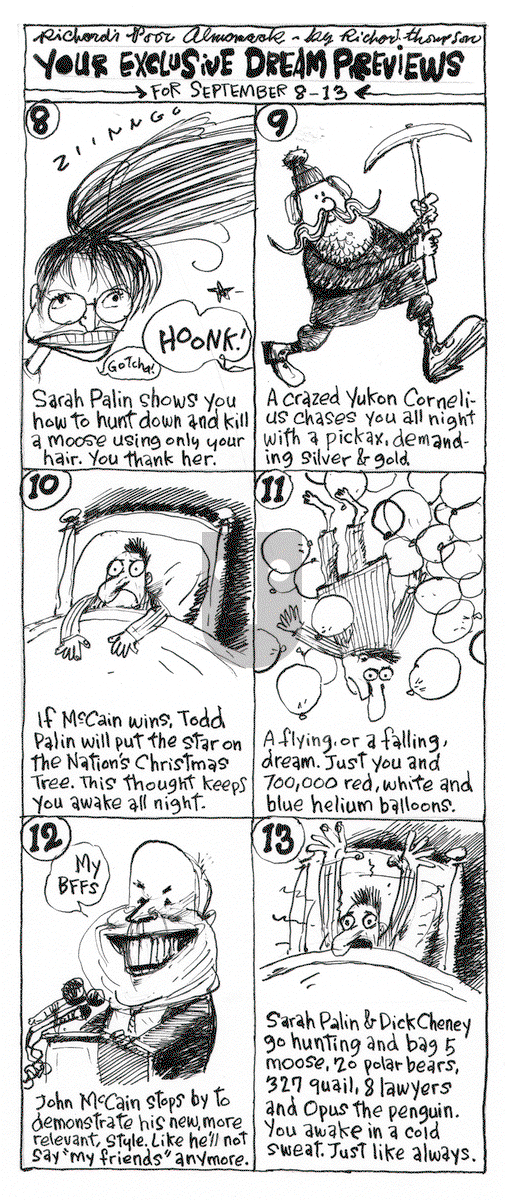 Richard's Poor Almanack - by Richard Thompson
YOUR EXCLUSIVE DREAM PREVIEWS
FOR SEPTEMBER 8-13
8
ZIINNGG
HOONK!
GOTCHA!
Sarah Palin shows you
how to hunt down and kill
a moose using only your
hair. You thank her.
9
A crazed Yukon Corneli-
us chases you all night
with a pickax, demand-
ing silver & gold.
10
If McCain wins, Todd
Palin will put the star on
the Nation's Christmas
Tree. This thought keeps
you awake all night.
11
A flying, or a falling,
dream. Just you and
700,000 red, white and
blue helium balloons.
12
My
BFFs
John McCain stops by to
demonstrate his new, more
relevant, style. Like he'll not
say "my friends" anymore.
13
Sarah Palin & Dick Cheney
go hunting and bag 5
moose, 20 polar bears,
327 quail, 8 lawyers
and Opus the penguin.
You awake in a cold
sweat. Just like always.